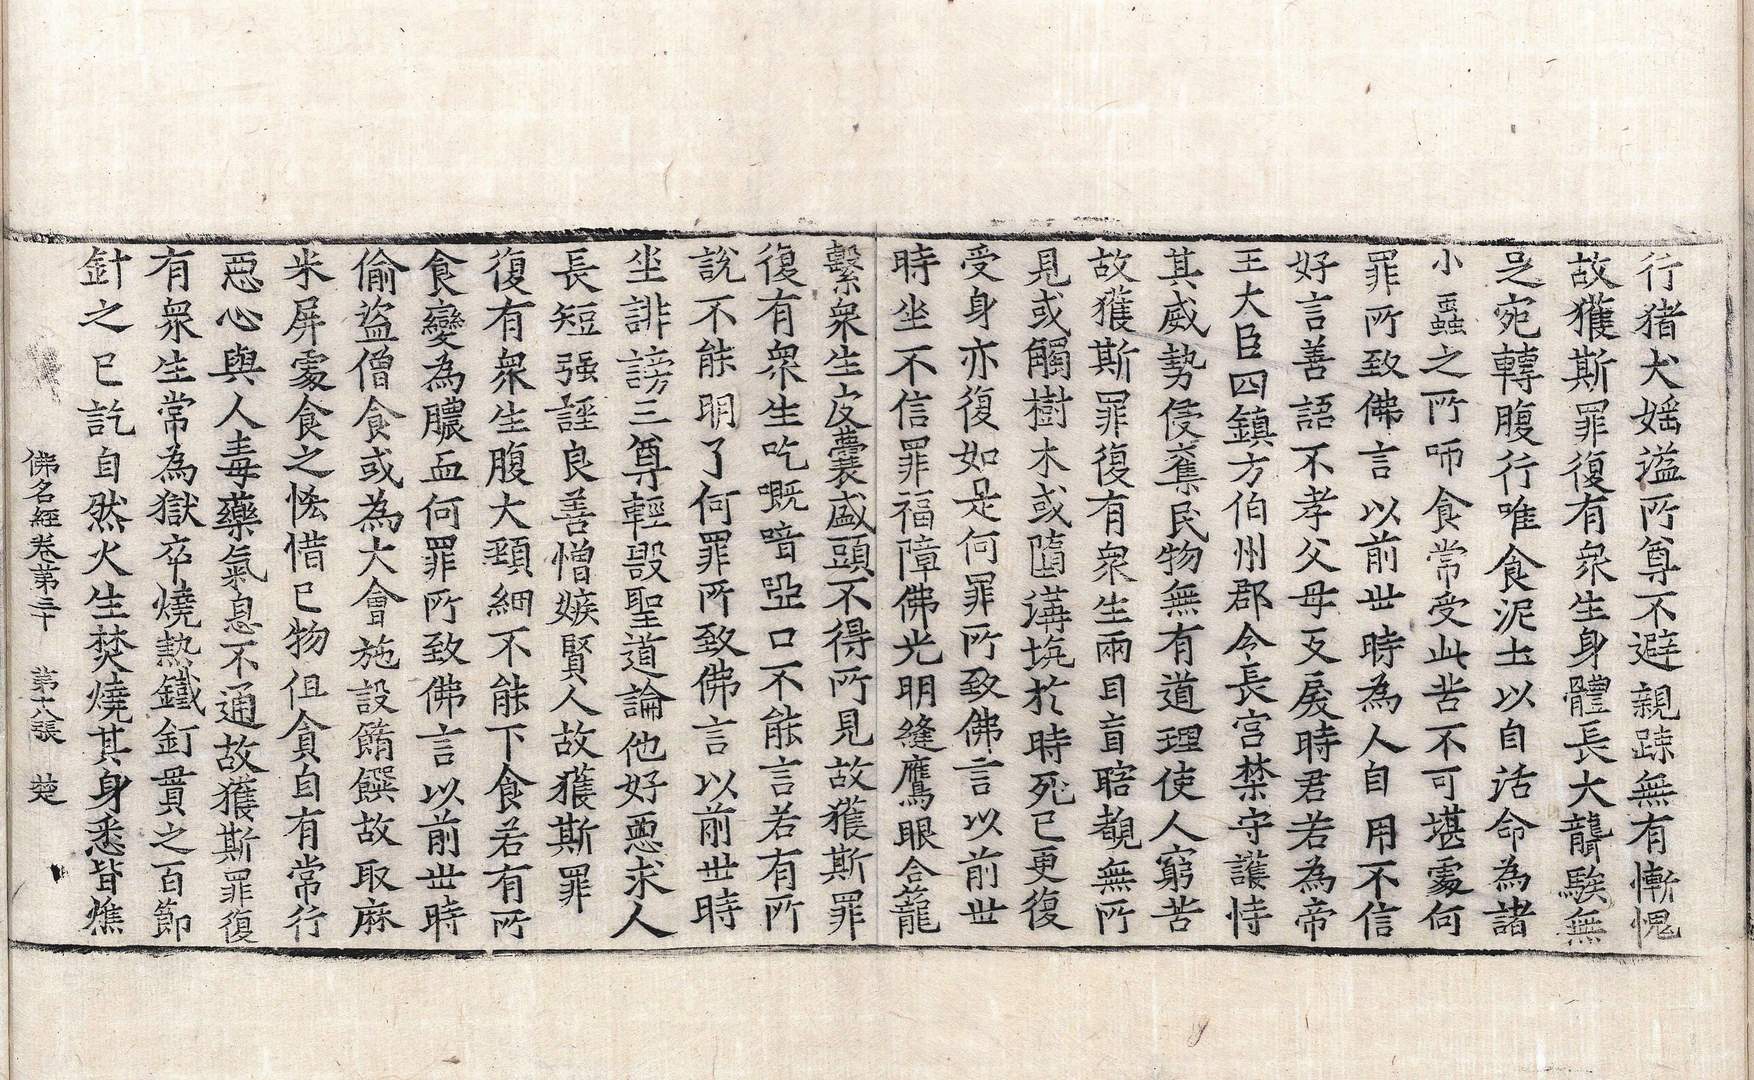 行猪犬婬溢所尊不避親踈無有慚愧
故獲斯罪復有衆生身體長大聾騃無
足宛轉腹行唯食泥土以自活命為諸
小蟲之所唼食常受此苦不可堪處何
罪所致佛言以前世時為人自用不信
好言善語不孝父母反戾時君若為帝
王大臣四鎮方伯州郡令長官禁守護恃
其威勢侵奪民物無有道理使人窮苦
故獲斯罪復有衆生兩目盲瞎覩無所
見或觸樹木或墮溝坑於時死已更復
受身亦復如是何罪所致佛言以前世
時坐不信罪福障佛光明縫鷹眼合籠
繫衆生皮囊盛頭不得所見故獲斯罪
復有衆生吃嘅喑啞口不能言若有所
說不能明了何罪所致佛言以前世時
坐誹謗三尊輕毀聖道論他好惡求人
長短强誣良善憎嫉賢人故獲斯罪
復有衆生腹大頸細不能下食若有所
食變為膿血何罪所致佛言以前世時
偷盜僧食或為大會施設餚饌故取麻
米屏處食之恡惜已物但貪自有常行
惡心與人毒藥氣息不通故獲斯罪復
有衆生常為獄卒燒熱鐵釘貫之百節
針之已訖自然火生焚燒其身悉皆燋
佛名經卷第三十 第十八張 楚